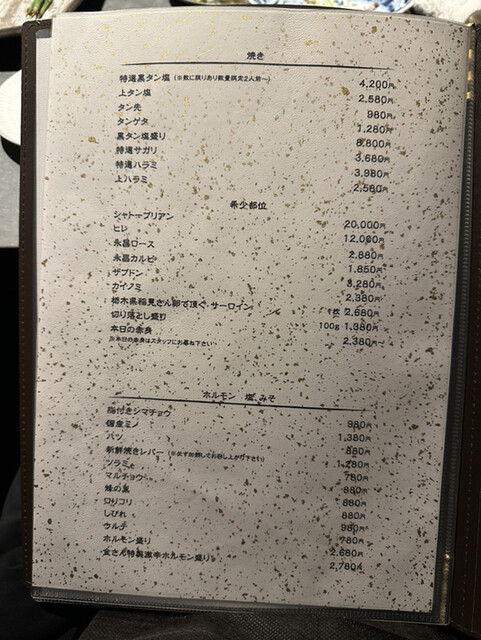 焼き
特選黒タン塩 (※数に限りあり数量限定2人前～) 4,200円
上タン塩 2,580円
タン先 980円
タンゲタ 1,280円
黒タン塩盛り 8,800円
特選サガリ 3,680円
特選ハラミ 3,980円
上ハラミ 2,580円
希少部位
シャトーブリアン 20,000円
ヒレ 12,000円
永昌ロース 2,880円
永昌カルビ 1,850円
ザブトン 3,280円
カイノミ 2,380円
栃木県稲見さん卵で頂く サーロイン 1枚 2,680円
切り落とし盛り 100g 1,380円
本日の赤身 2,380円～
※本日の赤身はスタッフにお尋ね下さい
ホルモン 塩 みそ
脂付きシマチョウ 980円
国産ミノ 1,380円
ハツ 880円
新鮮焼きレバー (※必ずお焼してお召し上がり下さい) 1,280円
ツラミ 780円
マルチョウ 880円
蜂の巣 880円
コリコリ 880円
しびれ 980円
ウルテ 780円
ホルモン盛り 2,680円
金さん特製激辛ホルモン盛り 2,780円